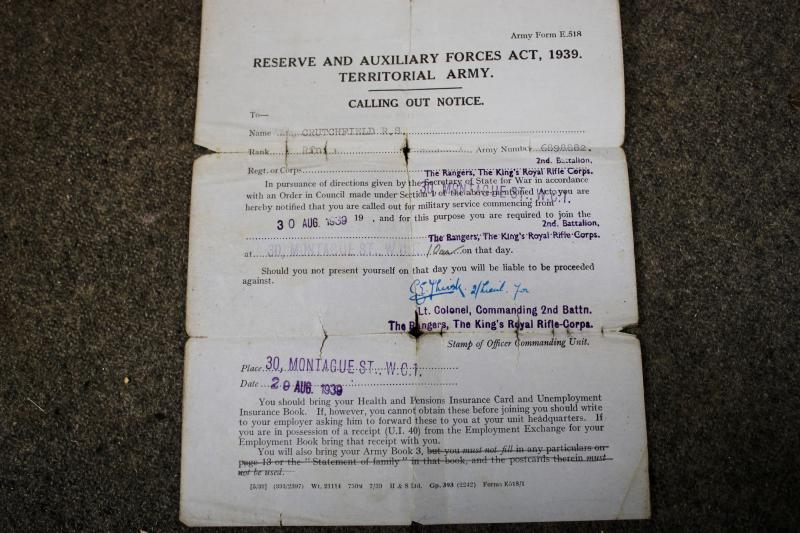 Army Form E.518
RESERVE AND AUXILIARY FORCES ACT, 1939.
TERRITORIAL ARMY.
CALLING OUT NOTICE.
To—
Name CRUTCHFIELD R.S.
Rank Rfn Army Number 6898882.
2nd. Battalion,
Regt. or Corps The Rangers, The King's Royal Rifle Corps.
In pursuance of directions given by the Secretary of State for War in accordance
30, MONTAGUE ST., W.C.1.
with an Order in Council made under Section 1 of the above-mentioned Act, you are
hereby notified that you are called out for military service commencing from
30 AUG. 1939 19 , and for this purpose you are required to join the
2nd. Battalion,
The Rangers, The King's Royal Rifle Corps.
at 30, MONTAGUE ST., W.C.1. on that day.
Should you not present yourself on that day you will be liable to be proceeded
against.
2/Lieut. for
Lt. Colonel, Commanding 2nd Battn.
The Rangers, The King's Royal Rifle Corps.
Stamp of Officer Commanding Unit.
Place 30, MONTAGUE ST., W.C.1.
Date 29 AUG. 1939
You should bring your Health and Pensions Insurance Card and Unemployment
Insurance Book. If, however, you cannot obtain these before joining you should write
to your employer asking him to forward these to you at your unit headquarters. If
you are in possession of a receipt (U.I. 40) from the Employment Exchange for your
Employment Book bring that receipt with you.
You will also bring your Army Book 3, but you must not fill in any particulars on
page 13 or the "Statement of family" in that book, and the postcards therein must
not be used.
(393/2397) Wt. 21114 750M 7/39 H & S Ltd. Gp. 393 (2242) Forms E518/1